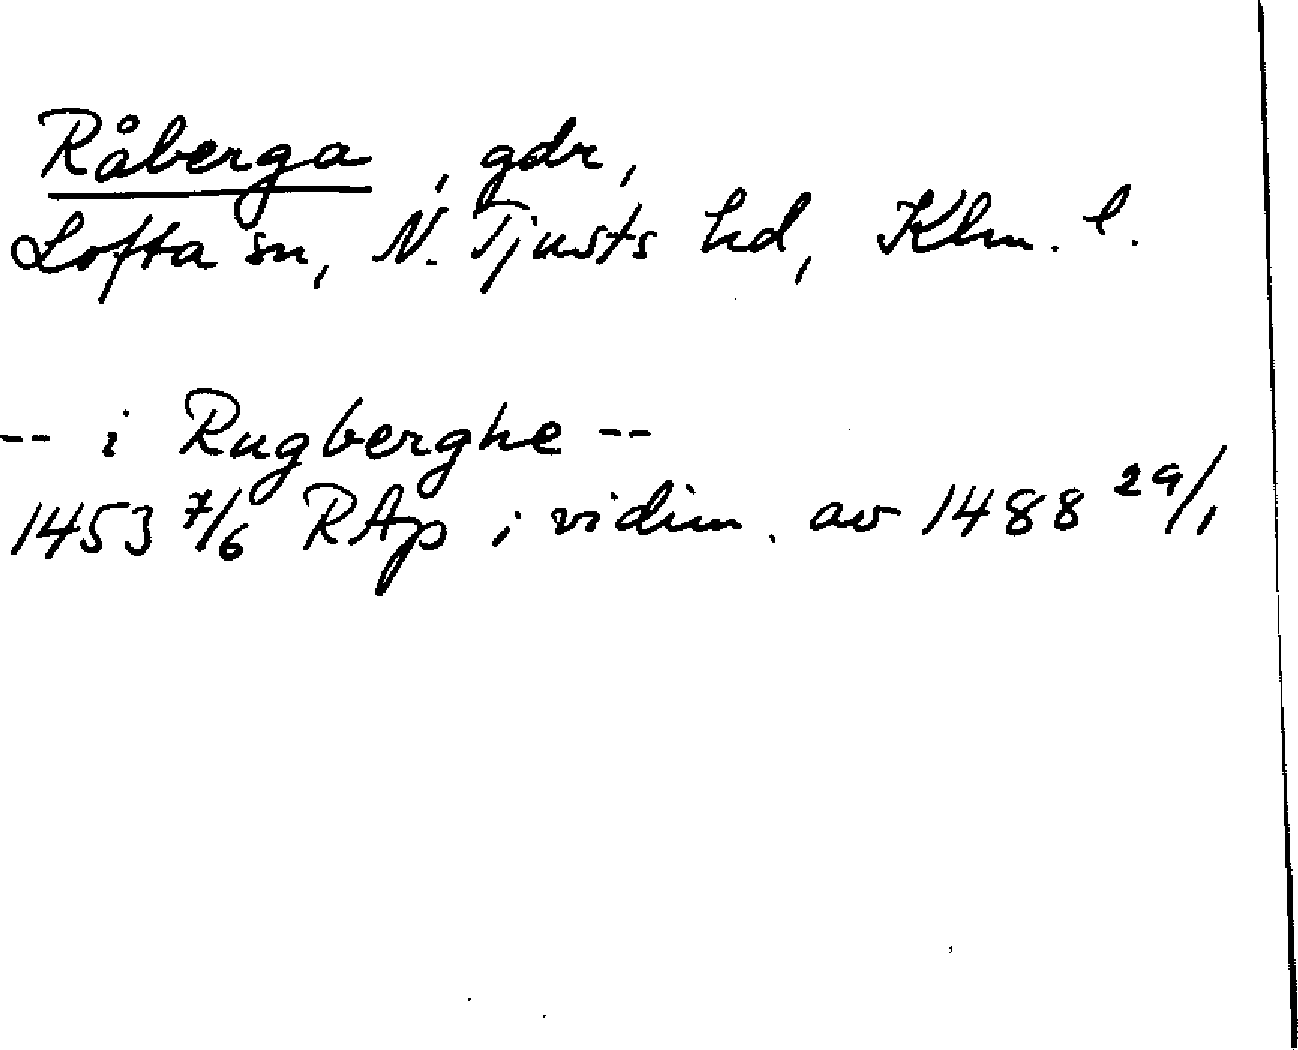 Råberga, gdr,
Lofta sn, N. Tjusts hd, Klm. l.
-- i Rugberghe --
1453 7/6 RAp i vidim. av 1488 29/1